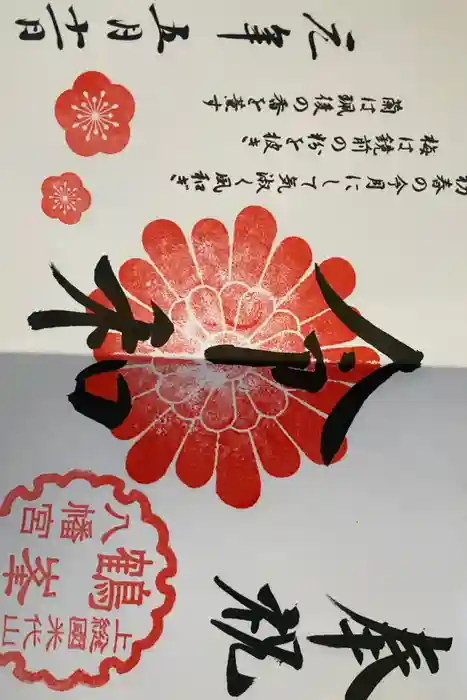 奉祝
上総國米代山
鶴峯
八幡宮
令和
初春の令月にして気淑く風和ぎ
梅は鏡前の粉を披き
蘭は珮後の香を薫す
元年五月十一日